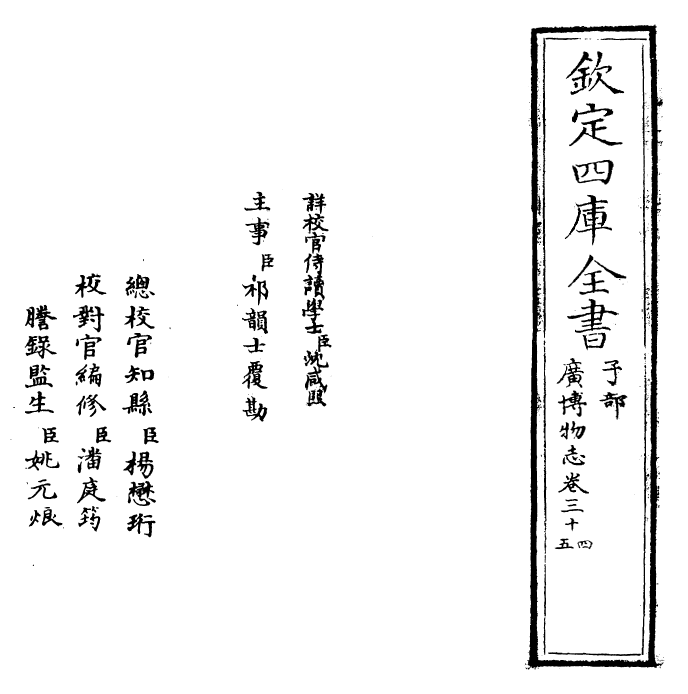 欽定四庫全書
子部
廣博物志卷三十四
五
詳校官侍讀學士臣沈咸熙
主事臣祁韻士覆勘
總校官知縣臣楊懋珩
校對官編修臣潘庭筠
謄錄監生臣姚元烺